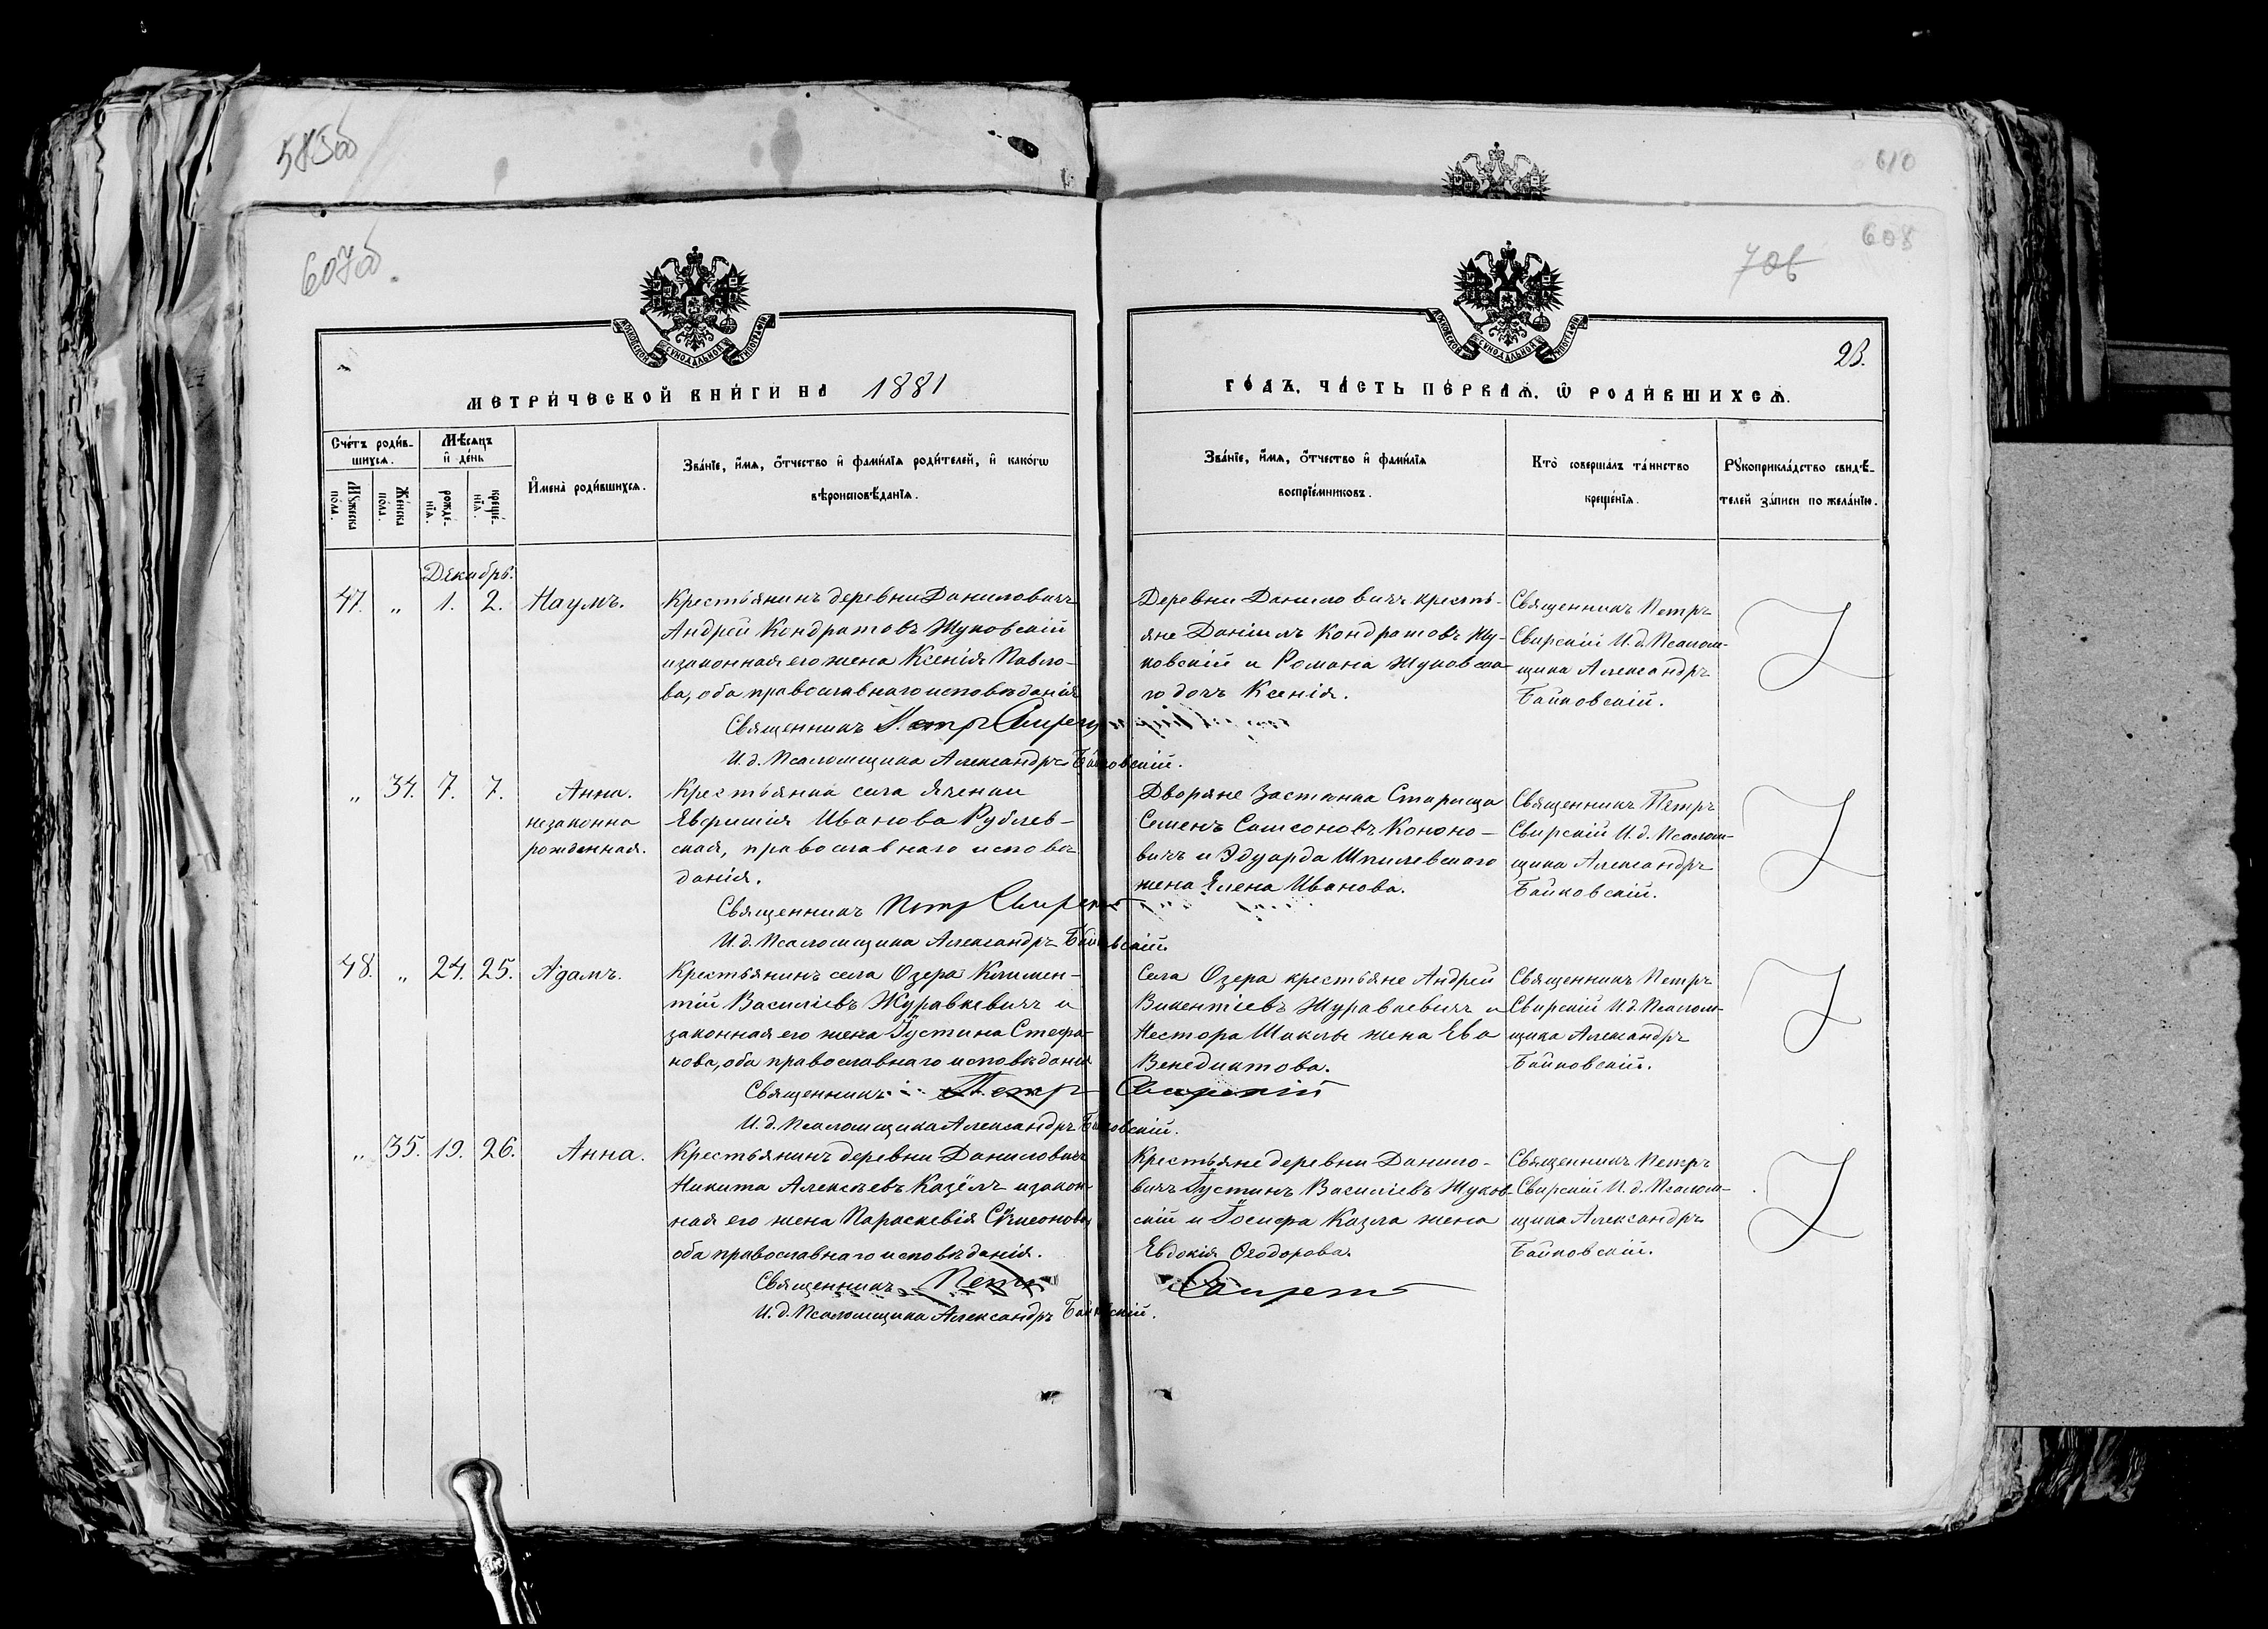 585об
610
607об.
706
608
МОСКОВСКОЙ СѴНОДАЛЬНОЙ ТИПОГРАФІИ
МОСКОВСКОЙ СѴНОДАЛЬНОЙ ТИПОГРАФІИ
23.
МЕТРИ́ЧЕСКОЙ КНИ́ГИ НА 1881
ГО́ДЪ, ЧА́СТЬ ПЕ́РВАѦ, Ѡ РОДИ́ВШИХСѦ.
Сче́тъ роди́в-
шихсѧ.
Мѣ́сѧцъ
и҆ де́нь
Мꙋ́жеска
по́ла.
Же́нска
по́ла.
рожде́-
нїѧ.
креще́-
нїѧ.
И҆мена̀ роди́вшихсѧ.
Зва́нїе, и҆́мѧ, ѻ҆́тчество и҆ фами́лїѧ роди́телей, и҆ како́гѡ
вѣроисповѣ́данїѧ.
Зва́нїе, и҆́мѧ, ѻ҆́тчество и҆ фами́лїѧ
воспрїе́мниковъ.
Кто̀ соверша́лъ та́инство
креще́нїѧ.
Рꙋкоприкла́дство свидѣ́-
телей за́писи по жела́нїю.
Декабрь.
47. „ 1. 2. Наумъ.
Крестьянинъ деревни Даниловичъ
Андрей Кондратовъ Жуковскій
и законная его жена Ксенія Павло-
ва, оба православнаго исповѣданія
Священникъ Петръ Свирскій
И. д. Псаломщика Александръ Байковскій.
Деревни Даниловичъ кресть-
яне Даніилъ Кондратовъ Жу-
ковскій и Романа Жуковска-
го дочь Ксенія.
Священникъ Петръ
Свирскій И. д. Псалом-
щика Александръ
Байковскій.
„ 34. 7. 7. Анна.
незаконно
рожденная.
Крестьянка села Ячонки
Евфимія Иванова Рублев-
ская, православнаго исповѣ
данія.
Священникъ Петръ Свирскій
И. д. Псаломщика Александръ Байковскій.
Дворяне Застѣнка Старища
Семенъ Самсоновъ Конено-
вичъ и Эдуарда Шпилевскаго
жена Елена Иванова.
Священникъ Петръ
Свирскій И. д. Псалом-
щика Александръ
Байковскій.
48. „ 24. 25. Адамъ.
Крестьянинъ села Озера Климен-
тій Василіевъ Журавкевичъ и
законная его жена Іустина Стефа-
нова, оба православнаго исповѣданія
Священникъ Петръ Свирскій
И. д. Псаломщика Александръ Байковскій.
Села Озера крестьяне Андрей
Викентіевъ Журавкевичъ и
Нестора Шиклы жена Ева
Венедиктова.
Священникъ Петръ
Свирскій И. д. Псалом-
щика Александръ
Байковскій.
„ 35. 19. 26. Анна.
Крестьянинъ деревни Даниловичъ
Никита Алексѣевъ Казёлъ и закон-
ная его жена Параскевія Сѵмеонова
оба православнаго исповѣданія.
Священникъ Петръ Свирскій
И. д. Псаломщика Александръ Байковскій.
Крестьяне деревни Данило-
вичъ Іустинъ Василіевъ Жуков-
скій и Іосифа Казла жена
Евдокія Ѳеодорова.
Священникъ Петръ
Свирскій И. д. Псалом-
щика Александръ
Байковскій.